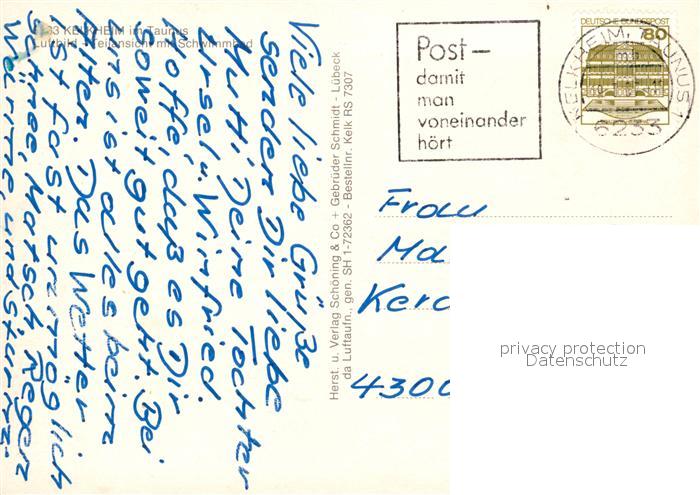 6233 KELKHEIM im Taunus
Luftbild - Teilansicht mit Schwimmbad
Viele liebe Grüße
sendet Dir liebe
Mutti Deine Tochter
Ursel u. Winfried
Hoffe, daß es Dir
soweit gut geht. Bei
uns ist alles beim
Alten. Das Wetter
ist fast unmöglich
Schnee, Matsch, Regen
Wärme und Sturm.
Herst. u. Verlag Schöning & Co + Gebrüder Schmidt - Lübeck
da Luftaufn., gen. SH 1-72362 - Bestellnr. Kelk RS 7307
Post -
damit
man
voneinander
hört
DEUTSCHE BUNDESPOST
80
KELKHEIM, TAUNUS 1
6233
Frau
Ma
Kerc
4300
privacy protection
Datenschutz